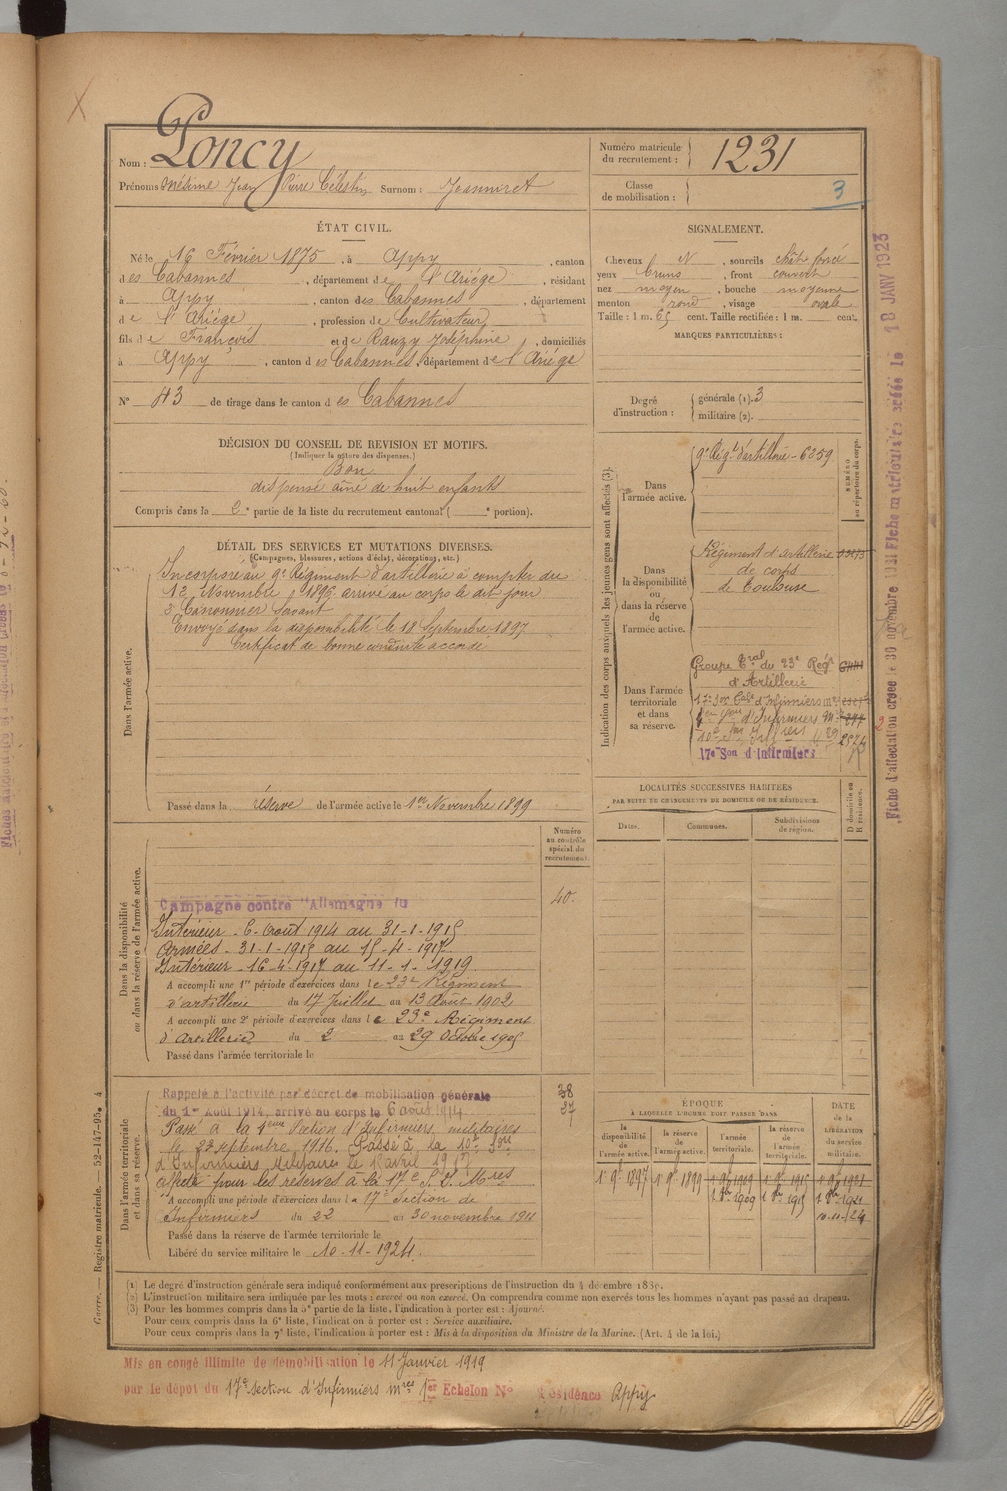 Nom : Poncy
Prénoms Onésime Jean Pierre Célestin Surnom : Jeanniret
Numéro matricule du recrutement : 1231
Classe de mobilisation : 3
ÉTAT CIVIL.
Né le 16 Février 1875, à Appy, canton
des Cabannes, département de l'Ariége, résidant
à Appy, canton des Cabannes, département
de l'Ariége, profession de Cultivateur
fils de François et de Rauzy Joséphine, domiciliés
à Appy, canton des Cabannes, département de l'Ariége
N° 43 de tirage dans le canton des Cabannes
SIGNALEMENT.
Cheveux N, sourcils chât foncé
yeux bruns, front couvert
nez moyen, bouche moyenne
menton rond, visage ovale
Taille : 1 m. 65 cent. Taille rectifiée : 1 m. cent.
MARQUES PARTICULIÈRES :
Degré d'instruction : générale (1). 3
militaire (2).
DÉCISION DU CONSEIL DE REVISION ET MOTIFS.
(Indiquer la nature des dispenses.)
Bon
dispensé aîné de huit enfants
Compris dans la 2e partie de la liste du recrutement cantonal ( e portion).
DÉTAIL DES SERVICES ET MUTATIONS DIVERSES.
(Campagnes, blessures, actions d'éclat, décorations, etc.)
Dans l'armée active.
Incorporé au 9e Régiment d'artillerie à compter du
12 Novembre 1896 arrivé au corps le dit jour
2e Canonnier servant
Envoyé dans la disponibilité le 18 Septembre 1897
Certificat de bonne conduite accordé
Passé dans la réserve de l'armée active le 1er Novembre 1899
Indication des corps auxquels les jeunes gens sont affectés (3).
NUMÉRO au répertoire du corps.
Dans l'armée active.
9e Rég.t d'artillerie - 6259
Dans la disponibilité ou dans la réserve de l'armée active.
Régiment d'artillerie
de corps
de Toulouse
Dans l'armée territoriale et dans sa réserve.
Groupe Tral du 23e Régt
d'Artillerie
17e Son d'Infirmiers
LOCALITÉS SUCCESSIVES HABITÉES
PAR SUITE DE CHANGEMENTS DE DOMICILE OU DE RÉSIDENCE.
Dates. Communes. Subdivisions de région. D domicile ou R résidence.
Dans la disponibilité ou dans la réserve de l'armée active.
Numéro au contrôle spécial du recrutement.
40.
Campagne contre l'Allemagne du
Intérieur - 6 - Aout 1914 au 31-1-1915
Armées - 31-1-1915 au 15-4-1917
Intérieur - 16-4-1917 au 11-1-1919
A accompli une 1re période d'exercices dans le 23e Régiment
d'artillerie du 17 Juillet au 13 Août 1902
A accompli une 2e période d'exercices dans le 23e Régiment
d'artillerie du 2 au 29 Octobre 1905
Passé dans l'armée territoriale le
Dans l'armée territoriale et dans sa réserve.
38
37
Rappelé à l'activité par décret de mobilisation générale
du 1er Août 1914, arrivé au corps le 6 aout 1914
Passé à la 4eme Section d'Infirmiers militaires
le 22 septembre 1916. Passé à la 10e Son
d'Infirmiers Militaires le 12 avril 1917
affecté pour les réserves à la 17e S. I. Mres
A accompli une période d'exercices dans la 17e Section de
Infirmiers du 22 au 30 novembre 1911
Passé dans la réserve de l'armée territoriale le
Libéré du service militaire le 10-11-1924.
ÉPOQUE
À LAQUELLE L'HOMME DOIT PASSER DANS
la disponibilité de l'armée active. la réserve de l'armée active. l'armée territoriale. la réserve de l'armée territoriale.
DATE de la LIBÉRATION du service militaire.
1 9e 1897 1 9e 1899
1 8bre 1909 1 8bre 1915 1 8bre 1921
10-11-24
(1) Le degré d'instruction générale sera indiqué conformément aux prescriptions de l'instruction du 4 décembre 1889.
(2) L'instruction militaire sera indiquée par les mots : exercé ou non exercé. On comprendra comme non exercés tous les hommes n'ayant pas passé au drapeau.
(3) Pour les hommes compris dans la 5e partie de la liste, l'indication à porter est : Ajourné.
Pour ceux compris dans la 6e liste, l'indication à porter est : Service auxiliaire.
Pour ceux compris dans la 7e liste, l'indication à porter est : Mis à la disposition du Ministre de la Marine. (Art. 4 de la loi.)
Mis en congé illimité de démobilisation le 11 Janvier 1919
par le dépôt du 17e section d'Infirmiers mres 1er Echelon N° Résidence Appy
Guerre. — Registre matricule. — 52-147-95. 4
Fiche d'affectation créée le 30 novembre 1931
Fiche matriculaire créée le 18 JANV 1923